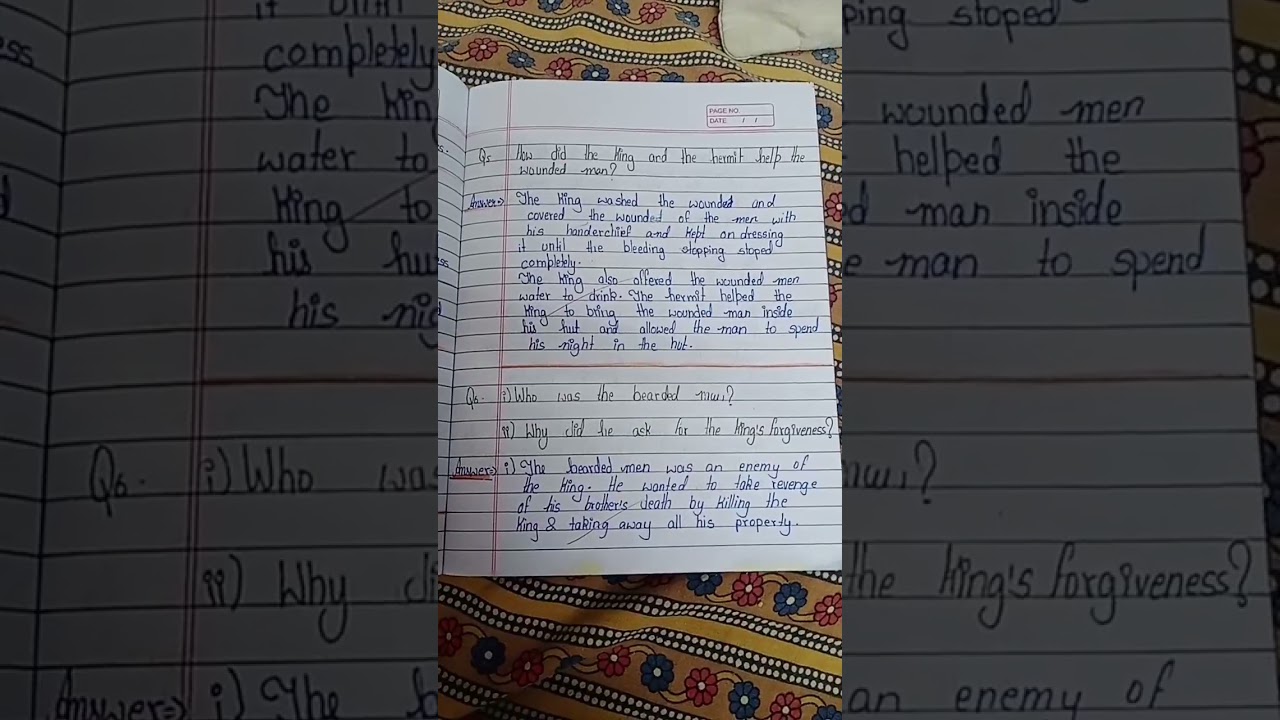 PAGE NO.
DATE / /
Q5 How did the King and the hermit help the
wounded man?
Answer=> The King washed the wounded and
covered the wounded of the men with
his handerchief and kept on dressing
it until the bleeding stopping stoped
completely.
The King also offered the wounded men
water to drink. The hermit helped the
King to bring the wounded man inside
his hut and allowed the man to spend
his night in the hut.
Q6. i) Who was the bearded man?
ii) Why did he ask for the King's forgiveness?
Answer=> i) The bearded men was an enemy of
the King. He wanted to take revenge
of his brother's death by killing the
King & taking away all his property.